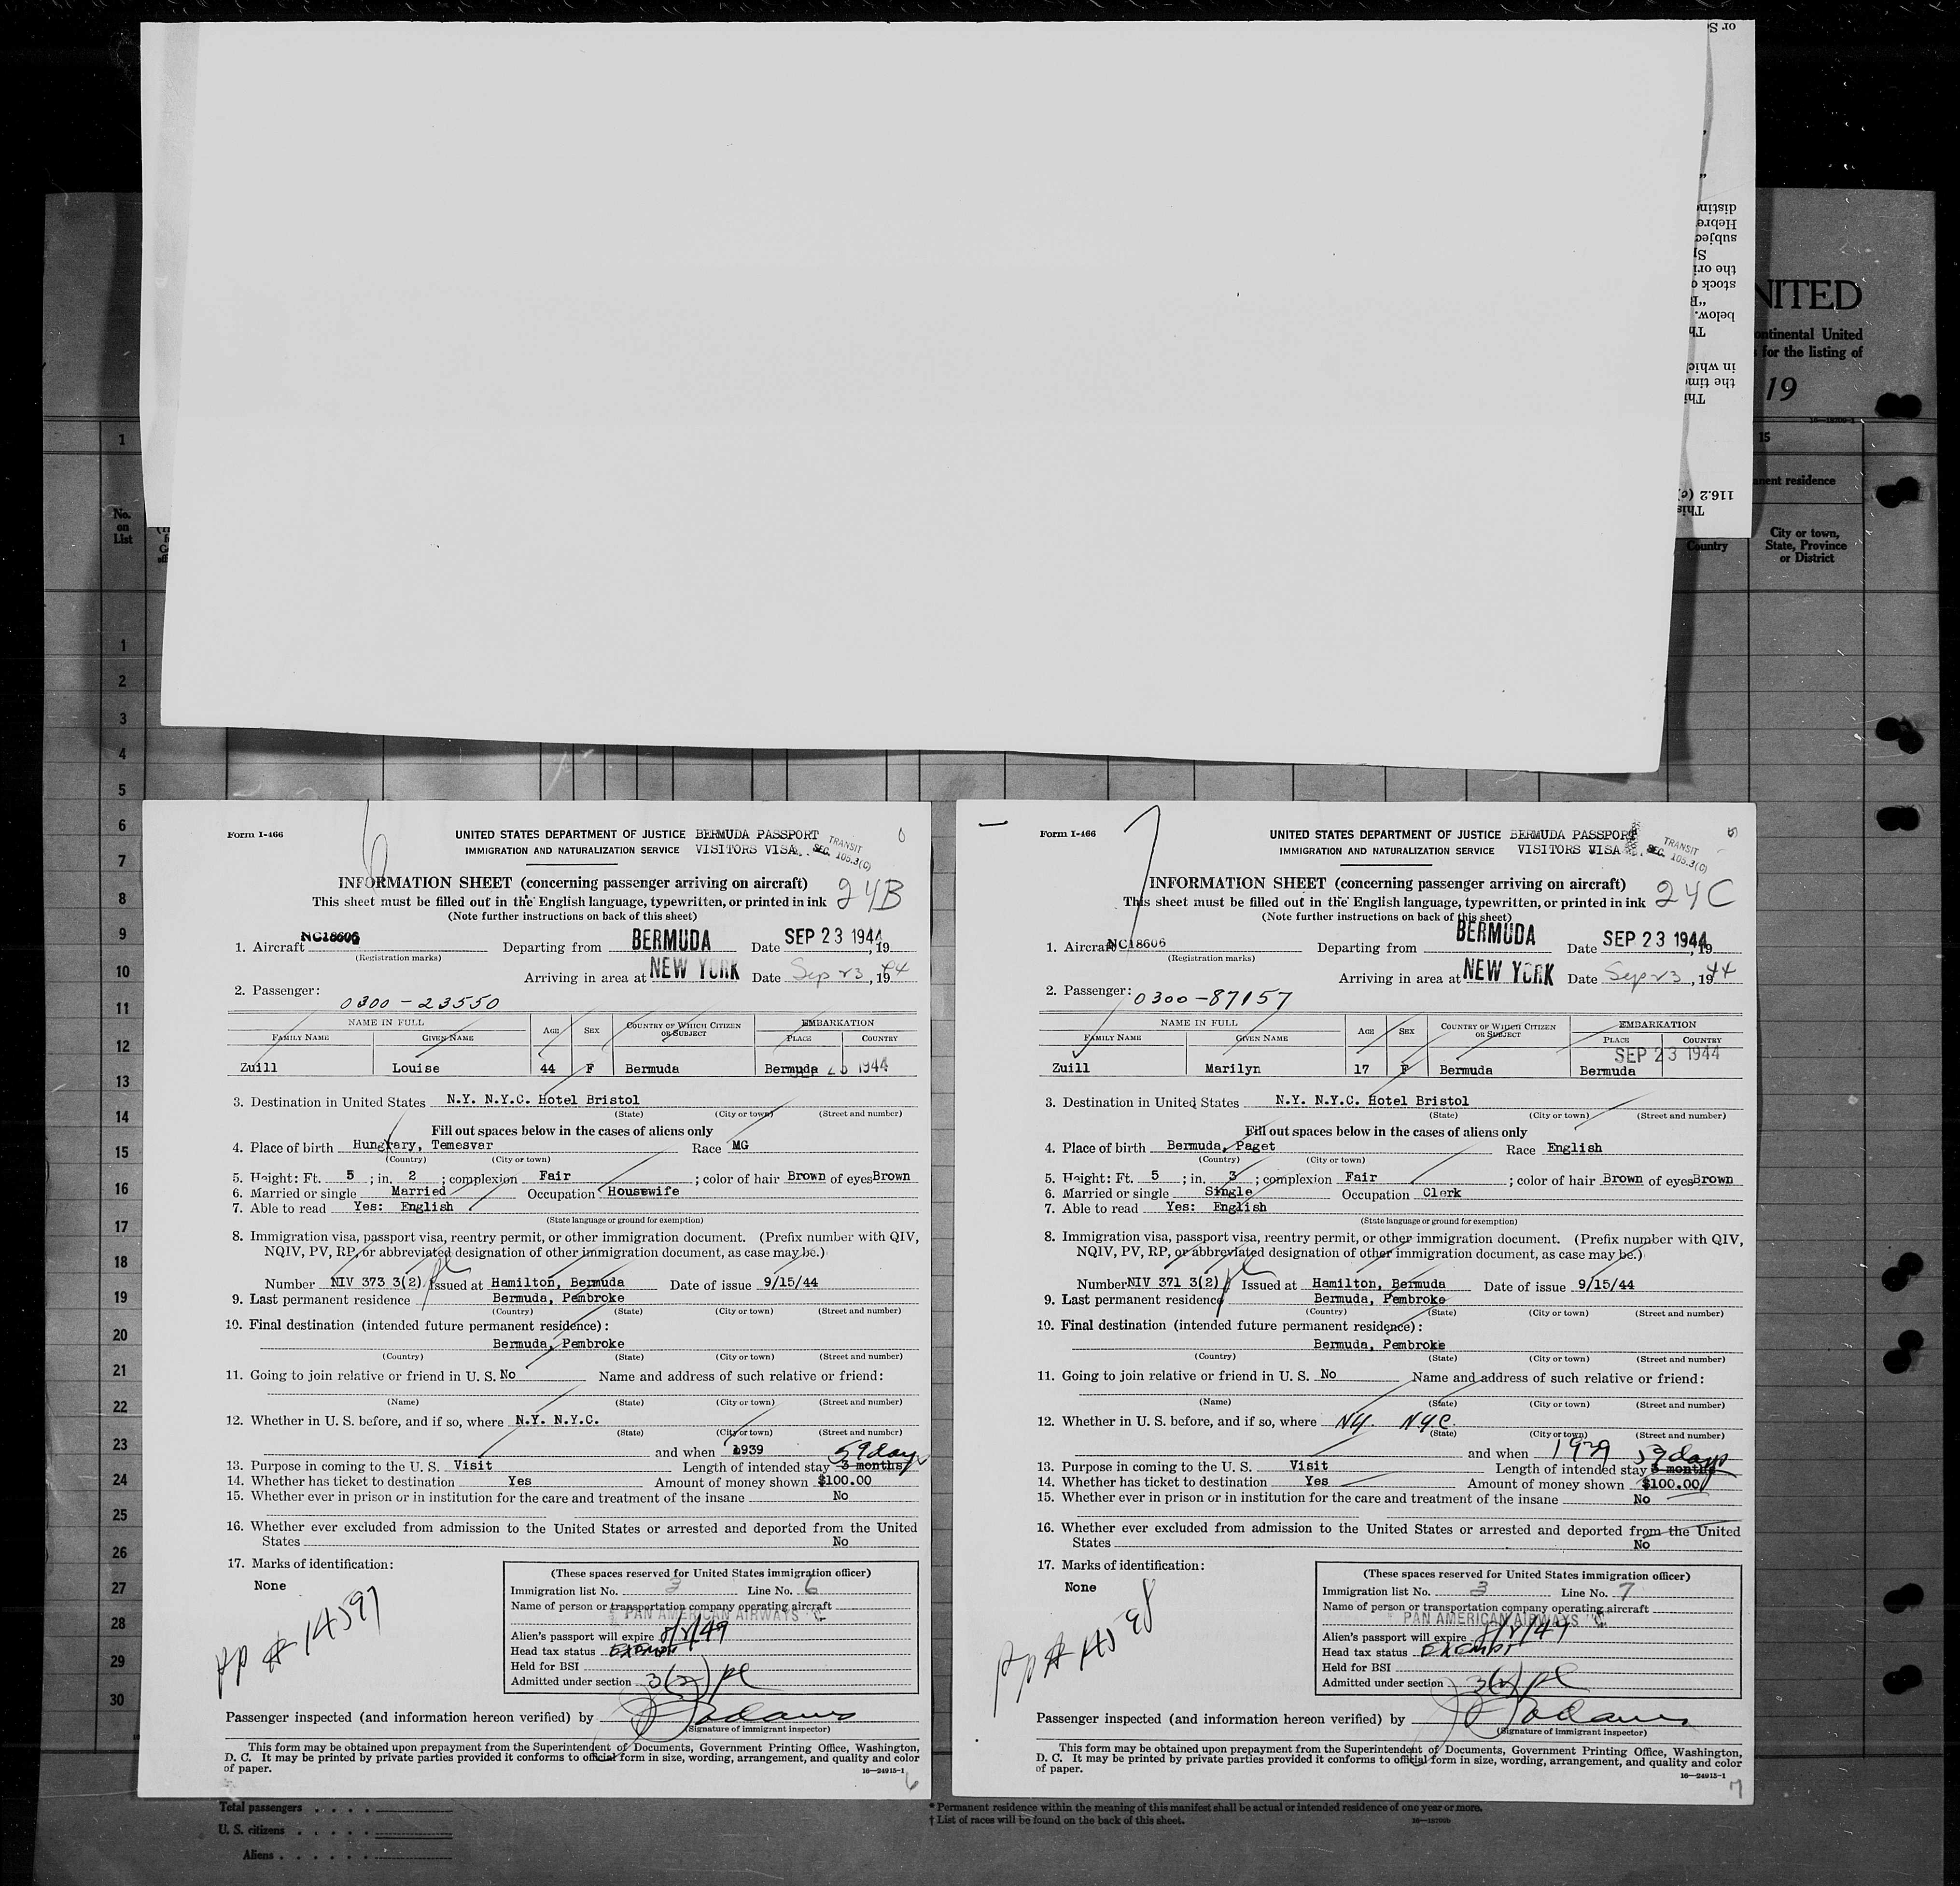 or S
distinc
Hebre
subjec
Sp
the ori
stock o
"B
below.
Th
in which
the time
Thi
116.2 (c)
This
NITED
ontinental United
for the listing of
19
15
anent residence
Country
City or town,
State, Province
or District
No.
on
List
1
1
2
3
4
5
6
7
8
9
10
11
12
13
14
15
16
17
18
19
20
21
22
23
24
25
26
27
28
29
30
6
Form I-466
UNITED STATES DEPARTMENT OF JUSTICE BERMUDA PASSPORT
IMMIGRATION AND NATURALIZATION SERVICE VISITORS VISA
TRANSIT
SEC. 105.3(C)
INFORMATION SHEET (concerning passenger arriving on aircraft) 24B
This sheet must be filled out in the English language, typewritten, or printed in ink
(Note further instructions on back of this sheet)
1. Aircraft NC18606 Departing from BERMUDA Date SEP 23 1944, 19
(Registration marks)
Arriving in area at NEW YORK Date Sep 23, 1944
2. Passenger: 0300-23550
NAME IN FULL AGE SEX COUNTRY OF WHICH CITIZEN OR SUBJECT EMBARKATION
FAMILY NAME GIVEN NAME PLACE COUNTRY
Zuill Louise 44 F Bermuda Bermuda 1944
3. Destination in United States N.Y. N.Y.C. Hotel Bristol
(State) (City or town) (Street and number)
Fill out spaces below in the cases of aliens only
4. Place of birth Hungrary, Temesvar Race MG
(Country) (City or town)
5. Height: Ft. 5 ; in. 2 ; complexion Fair ; color of hair Brown of eyes Brown
6. Married or single Married Occupation Housewife
7. Able to read Yes: English
(State language or ground for exemption)
8. Immigration visa, passport visa, reentry permit, or other immigration document. (Prefix number with QIV,
NQIV, PV, RP, or abbreviated designation of other immigration document, as case may be.)
Number NIV 373 3(2) Issued at Hamilton, Bermuda Date of issue 9/15/44
9. Last permanent residence Bermuda, Pembroke
(Country) (State) (City or town) (Street and number)
10. Final destination (intended future permanent residence):
Bermuda, Pembroke
(Country) (State) (City or town) (Street and number)
11. Going to join relative or friend in U. S. No Name and address of such relative or friend:
(Name) (State) (City or town) (Street and number)
12. Whether in U. S. before, and if so, where N.Y. N.Y.C.
(State) (City or town) (Street and number)
and when 1939 59 days
13. Purpose in coming to the U. S. Visit Length of intended stay 3 months
14. Whether has ticket to destination Yes Amount of money shown $100.00
15. Whether ever in prison or in institution for the care and treatment of the insane No
16. Whether ever excluded from admission to the United States or arrested and deported from the United
States No
17. Marks of identification:
None
pp # 14597
(These spaces reserved for United States immigration officer)
Immigration list No. 3 Line No. 6
Name of person or transportation company operating aircraft
PAN AMERICAN AIRWAYS
Alien's passport will expire 5/8/49
Head tax status Exempt
Held for BSI
Admitted under section 3(2) pl
Passenger inspected (and information hereon verified) by Adams
(Signature of immigrant inspector)
This form may be obtained upon prepayment from the Superintendent of Documents, Government Printing Office, Washington,
D. C. It may be printed by private parties provided it conforms to official form in size, wording, arrangement, and quality and color
of paper.
16—24915-1
6
7
Form I-466
UNITED STATES DEPARTMENT OF JUSTICE BERMUDA PASSPORT
IMMIGRATION AND NATURALIZATION SERVICE VISITORS VISA
TRANSIT
SEC. 105.3(C)
INFORMATION SHEET (concerning passenger arriving on aircraft) 24C
This sheet must be filled out in the English language, typewritten, or printed in ink
(Note further instructions on back of this sheet)
1. Aircraft NC18606 Departing from BERMUDA Date SEP 23 1944, 19
(Registration marks)
Arriving in area at NEW YORK Date Sep 23, 1944
2. Passenger: 0300-87157
NAME IN FULL AGE SEX COUNTRY OF WHICH CITIZEN OR SUBJECT EMBARKATION
FAMILY NAME GIVEN NAME PLACE COUNTRY
SEP 23 1944
Zuill Marilyn 17 F Bermuda Bermuda
3. Destination in United States N.Y. N.Y.C. Hotel Bristol
(State) (City or town) (Street and number)
Fill out spaces below in the cases of aliens only
4. Place of birth Bermuda, Paget Race English
(Country) (City or town)
5. Height: Ft. 5 ; in. 3 ; complexion Fair ; color of hair Brown of eyes Brown
6. Married or single Single Occupation Clerk
7. Able to read Yes: English
(State language or ground for exemption)
8. Immigration visa, passport visa, reentry permit, or other immigration document. (Prefix number with QIV,
NQIV, PV, RP, or abbreviated designation of other immigration document, as case may be.)
Number NIV 371 3(2) Issued at Hamilton, Bermuda Date of issue 9/15/44
9. Last permanent residence Bermuda, Pembroke
(Country) (State) (City or town) (Street and number)
10. Final destination (intended future permanent residence):
Bermuda, Pembroke
(Country) (State) (City or town) (Street and number)
11. Going to join relative or friend in U. S. No Name and address of such relative or friend:
(Name) (State) (City or town) (Street and number)
12. Whether in U. S. before, and if so, where N.Y. N.Y.C.
(State) (City or town) (Street and number)
and when 1939 59 days
13. Purpose in coming to the U. S. Visit Length of intended stay 3 months
14. Whether has ticket to destination Yes Amount of money shown $100.00
15. Whether ever in prison or in institution for the care and treatment of the insane No
16. Whether ever excluded from admission to the United States or arrested and deported from the United
States No
17. Marks of identification:
None
pp # 14598
(These spaces reserved for United States immigration officer)
Immigration list No. 3 Line No. 7
Name of person or transportation company operating aircraft
PAN AMERICAN AIRWAYS
Alien's passport will expire 5/8/49
Head tax status Exempt
Held for BSI
Admitted under section 3(2) pl
Passenger inspected (and information hereon verified) by Adams
(Signature of immigrant inspector)
This form may be obtained upon prepayment from the Superintendent of Documents, Government Printing Office, Washington,
D. C. It may be printed by private parties provided it conforms to official form in size, wording, arrangement, and quality and color
of paper.
16—24915-1
7
Total passengers
U. S. citizens
Aliens
* Permanent residence within the meaning of this manifest shall be actual or intended residence of one year or more.
† List of races will be found on the back of this sheet.